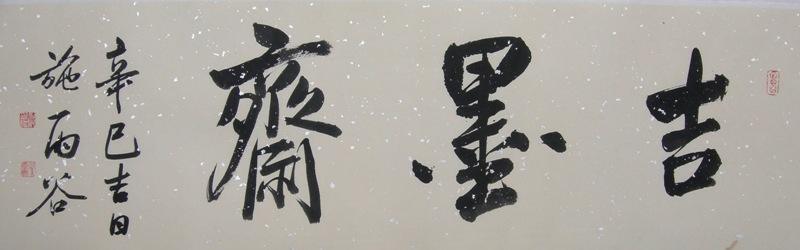 吉墨齋
辛巳吉日
施雨谷